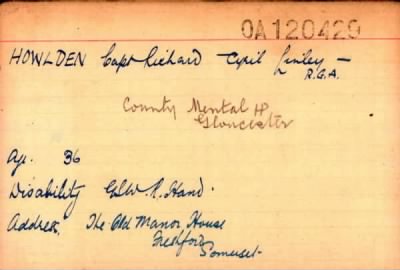 OA120429
HOWLDEN Capt Richard Cyril Linley —
R.G.A.
County Mental Hp
Gloucester
Age. 36
Disability GSW. R. Hand.
Address, The Old Manor House
Freshford
Somerset.